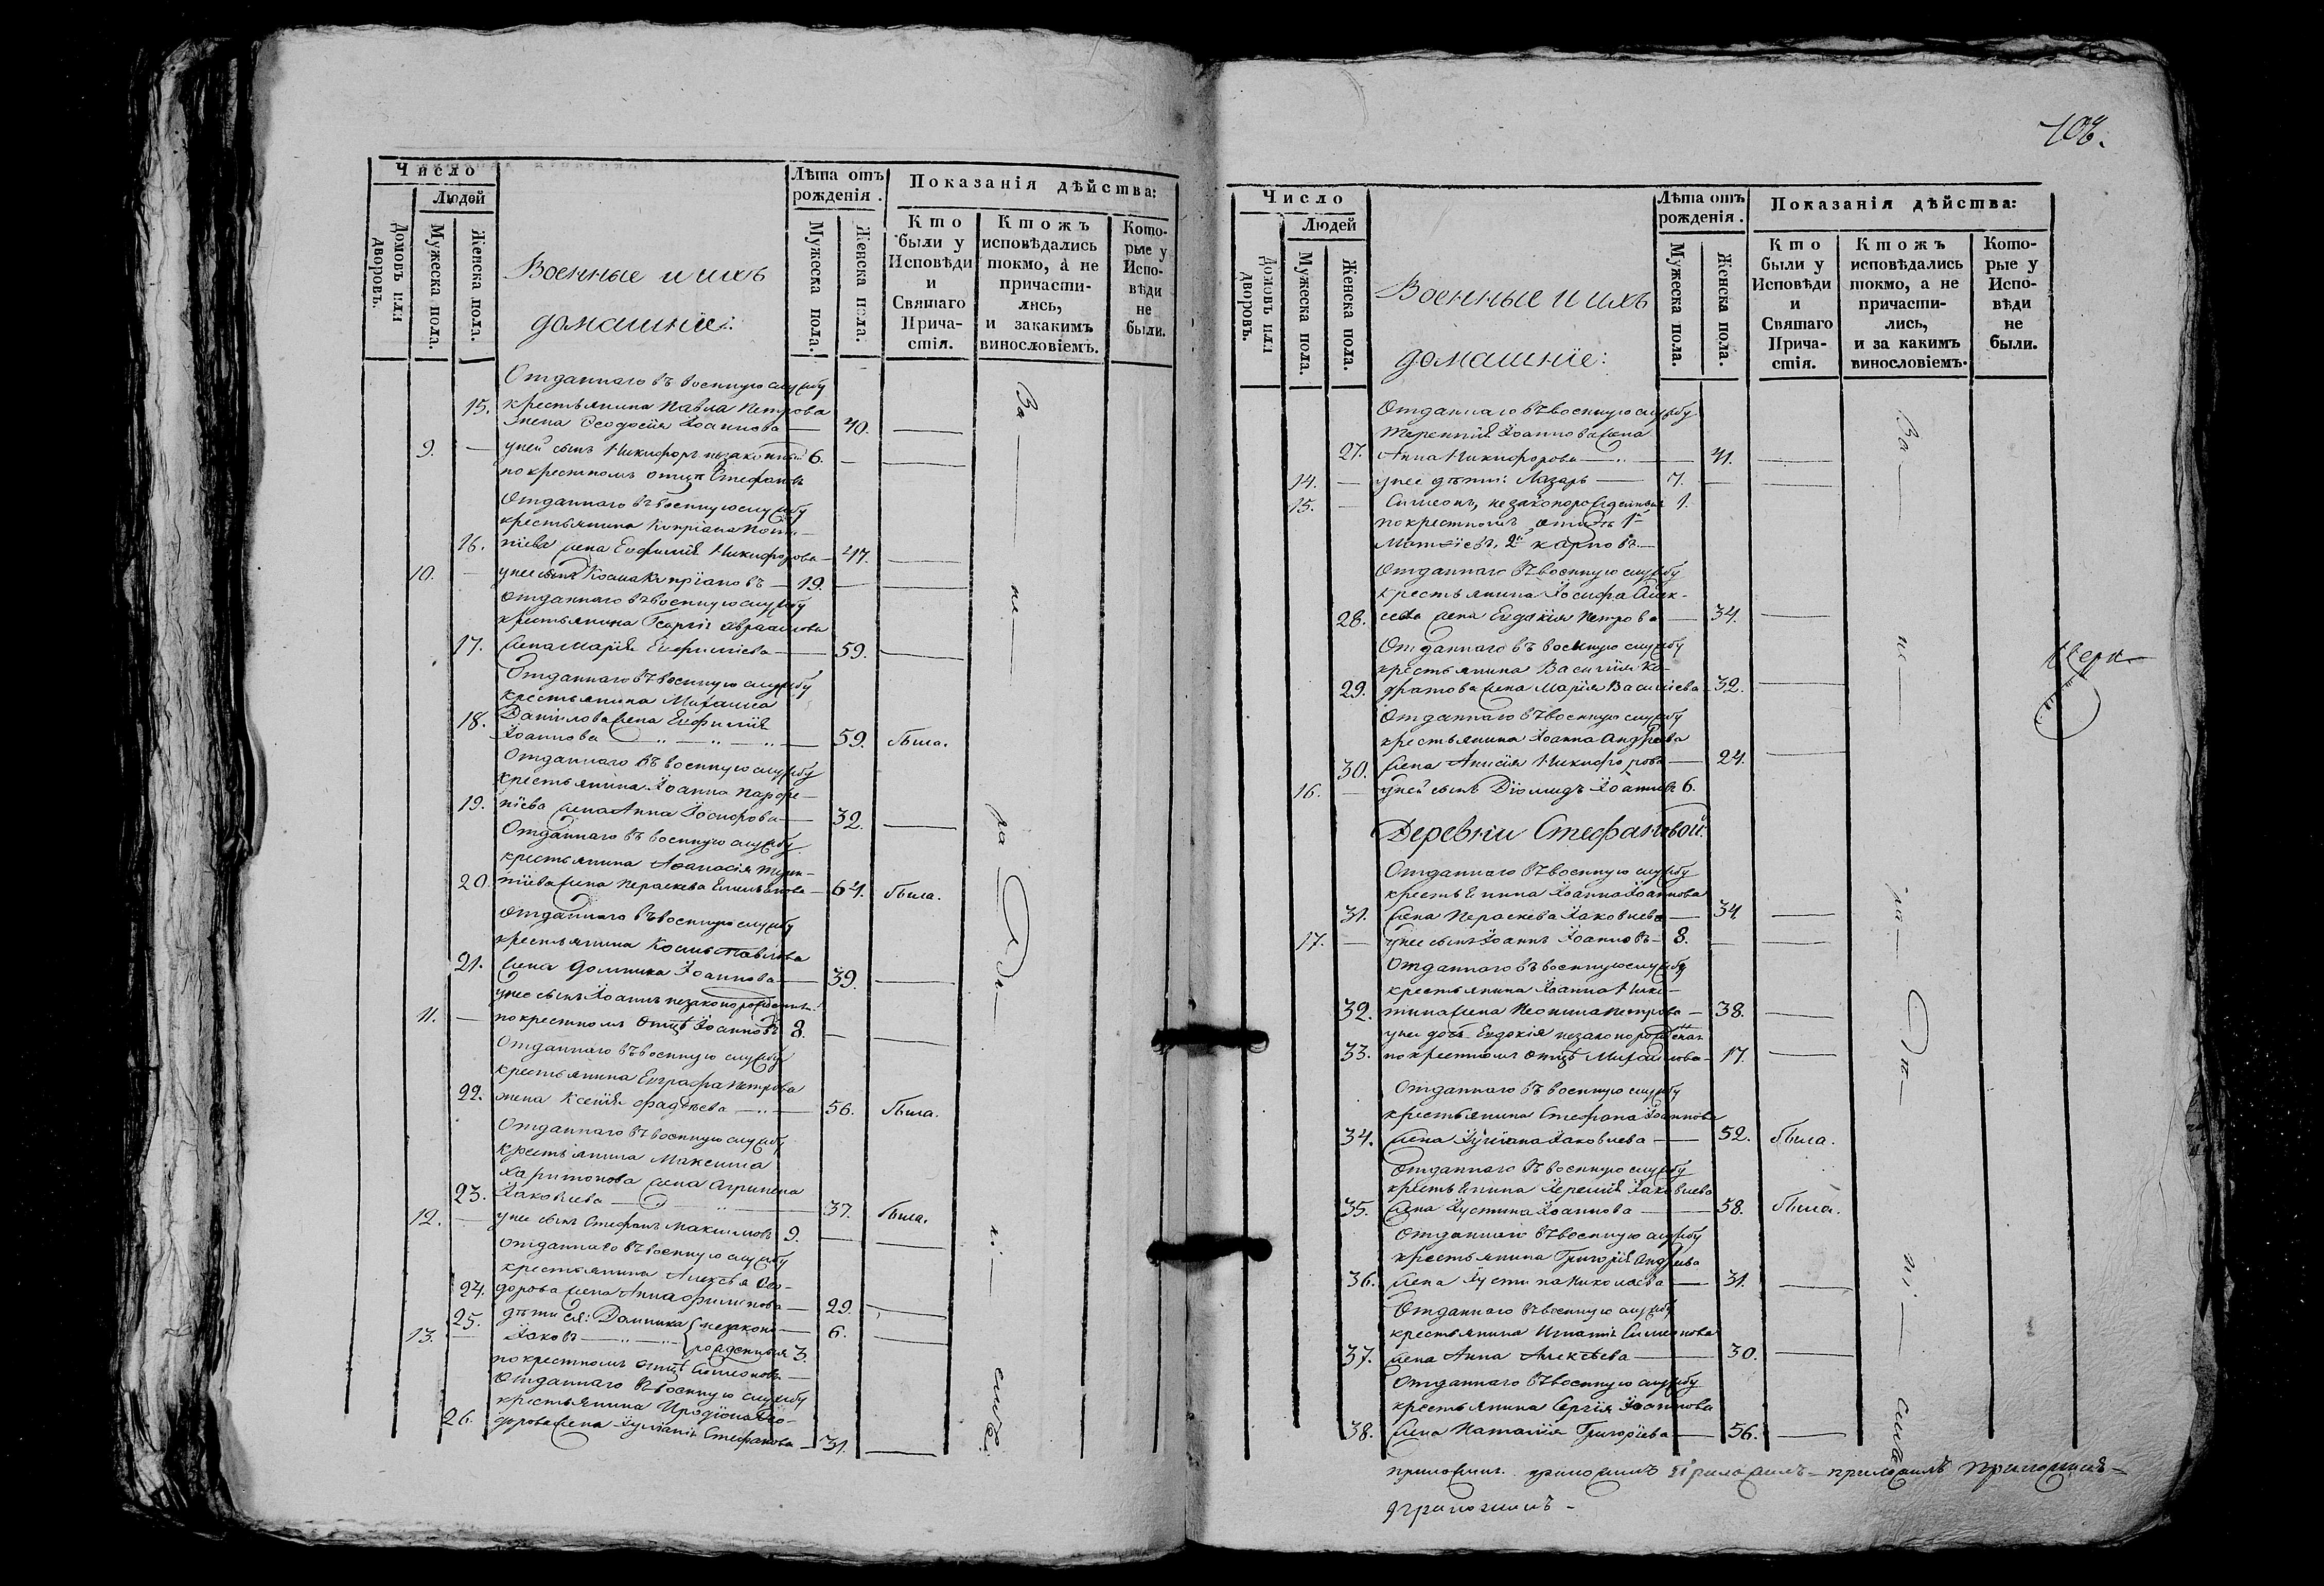 Число
Людей
Домовъ или дворовъ.
Мужеска пола.
Женска пола.
Военные и ихъ
домашніе:
Лѣта отъ
рожденія.
Мужеска пола.
Женска пола.
Показанія дѣйства:
Кто
были у
Исповѣди
и
Святаго
Прича-
стія.
Ктожъ
исповѣдались
токмо, а не
причасти-
лись,
и закакимъ
винословіемъ.
Кото-
рые у
Испо-
вѣди
не
были.
Отданнаго въ военную службу
15. крестьянина Павла Петрова
жена Ѳеодосія Іоаннова — 40. —
9. — у ней сынъ Никифоръ незаконный 6. —
по крестномъ отцѣ Стефановъ
Отданнаго въ военную службу
крестьянина Кипріана
16. жена Евфимія Никифорова — 47. —
10. — у нее сынъ Косма Кипріановъ — 19. —
Отданнаго въ военную службу
крестьянина Георгія Авраамова
17. жена Марія Евфиміева — 59. —
Отданнаго въ военную службу
крестьянина Михаила
18. Данілова жена Евфимія
Іоаннова — 59. была.
Отданнаго въ военную службу
крестьянина Іоанна Парфе-
19. ніева жена Анна Іосифова — 32. —
Отданнаго въ военную службу
крестьянина Аѳанасія Терен-
20. тіева жена Параскева Емельянова — 64. была.
Отданнаго въ военную службу
крестьянина Космы Павлова
21. жена Домника Іоаннова — 39. —
у нее сынъ Іоаннъ незаконорожденный
11. — по крестномъ отцѣ Іоанновъ 8. —
Отданнаго въ военную службу
крестьянина Евграфа Петрова
22. жена Ксенія Фадѣева — 56. была.
Отданнаго въ военную службу
крестьянина Максима
Харитонова жена Агрипена
23. Іаковлева — 37. была.
12. — у нее сынъ Стефанъ Максимовъ 9. —
Отданнаго въ военную службу
крестьянина Алексѣя Ѳео-
24. дорова жена Анна Филипова — 29. —
25. дѣти ея: Домника незаконо- — 6. —
13. — Іаковъ рожденныя 3.
по крестномъ отцѣ Симеоновъ
Отданнаго въ военную службу
крестьянина Иродіона Ѳео-
26. дорова жена Іуліанія Стефанова — 31. —
За не ра дѣ ні емъ
108.
Число
Людей
Домовъ или дворовъ.
Мужеска пола.
Женска пола.
Военные и ихъ
домашніе:
Лѣта отъ
рожденія.
Мужеска пола.
Женска пола.
Показанія дѣйства:
Кто
были у
Исповѣди
и
Святаго
Прича-
стія.
Ктожъ
исповѣдались
токмо, а не
причасти-
лись,
и за какимъ
винословіемъ.
Кото-
рые у
Испо-
вѣди
не
были.
Отданнаго въ военную службу
Терентія Іоаннова жена
27. Анна Никифорова — 41. —
14. — у нее дѣти: Лазарь — 7. —
15. — Симеонъ, незаконорожденныя 1.
по крестномъ отцѣ 1й
Матѳіевъ, 2й Карповъ. —
Отданнаго въ военную службу
крестьянина Іосифа Алек-
28. сеева жена Евдокія Петрова — 34. —
Отданнаго въ военную службу
крестьянина Василія Ко-
29. дратова жена Марія Василіева — 32. —
Отданнаго въ военную службу
крестьянина Іоанна Андреева
30. жена Анисія Никифорова — 24. —
16. — у ней сынъ Діомидъ Іоанновъ 6.
Деревни Стефановой:
Отданнаго въ военную службу
крестьянина Іоанна Іоаннова
31. жена Параскева Іаковлева — 34. —
17. — у нее сынъ Іоаннъ Іоанновъ — 8. —
Отданнаго въ военную службу
крестьянина Іоанна Ники-
32. тина жена Неонила Петрова — 38. —
у нее дочь Евдокія незаконорожденная
33. по крестномъ отцѣ Михаилова — 17. —
Отданнаго въ военную службу
крестьянина Стефана Іоаннова
34. жена Іуліана Іаковлева — 52. была.
Отданнаго въ военную службу
крестьянина Іеремія Іаковлева
35. жена Іустина Іоаннова — 58. была.
Отданнаго въ военную службу
крестьянина Григорія Андреева
36. жена Іустина Николаева — 31. —
Отданнаго въ военную службу
крестьянина Игнатія Симеонова
37. жена Анна Алексѣева — 30. —
Отданнаго въ военную службу
крестьянина Сергія Іоаннова
38. жена Наталія Григоріева — 56. —
За не ра дѣ ні емъ